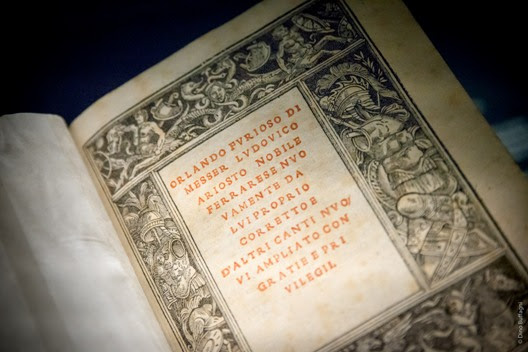 ORLANDO FVRIOSO DI
MESSER LVDOVICO
ARIOSTO NOBILE
FERRARESE NVO
VAMENTE DA
LVI PROPRIO
CORRETTO E
D'ALTRI CANTI NVO/
VI AMPLIATO CON
GRATIE E PRI
VILEGII.
© Dino Buffagni